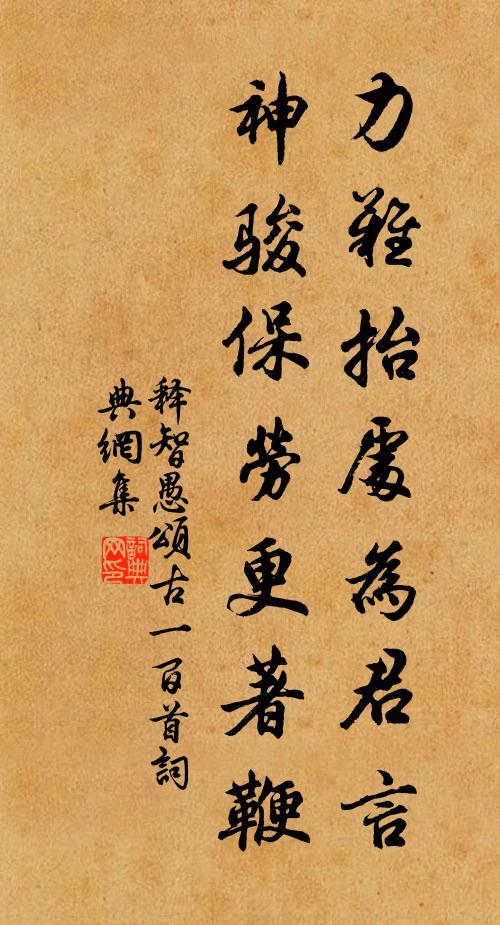 力難抬處為君言
神骏保勞更著鞭
释智愚頌古一百首詞
典網集
詞典網印